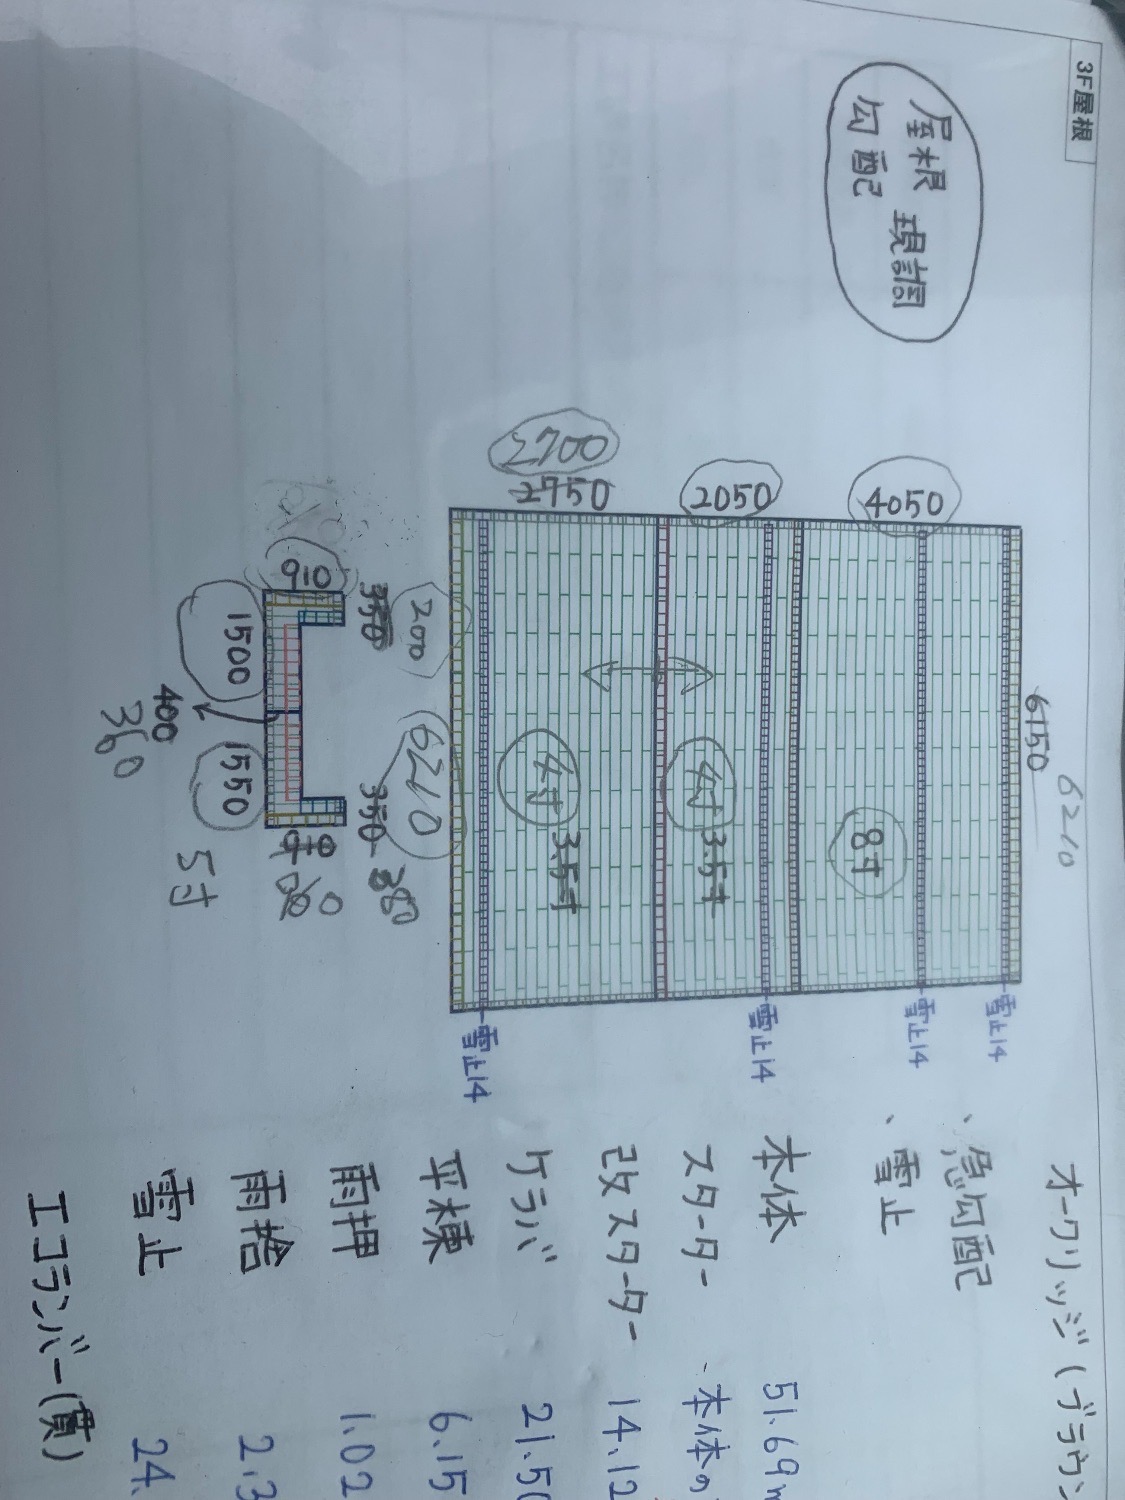 3F屋根
屋根 現調
勾配
6150
6210
4050
2050
2700
2750
8寸
4寸 3.5寸
4寸 3.5寸
雪止14
雪止14
雪止14
雪止14
200
6210
350
350
380
910
1500
1550
400
360
5寸
オークリッジ(ブラウン
、急勾配
、雪止
本体 51.69m
スターター 、本体の
改スターター 14.12
ケラバ 21.50
平棟 6.15
雨押 1.02
雨捨 2.3
雪止 24.
エコランバー(貫)